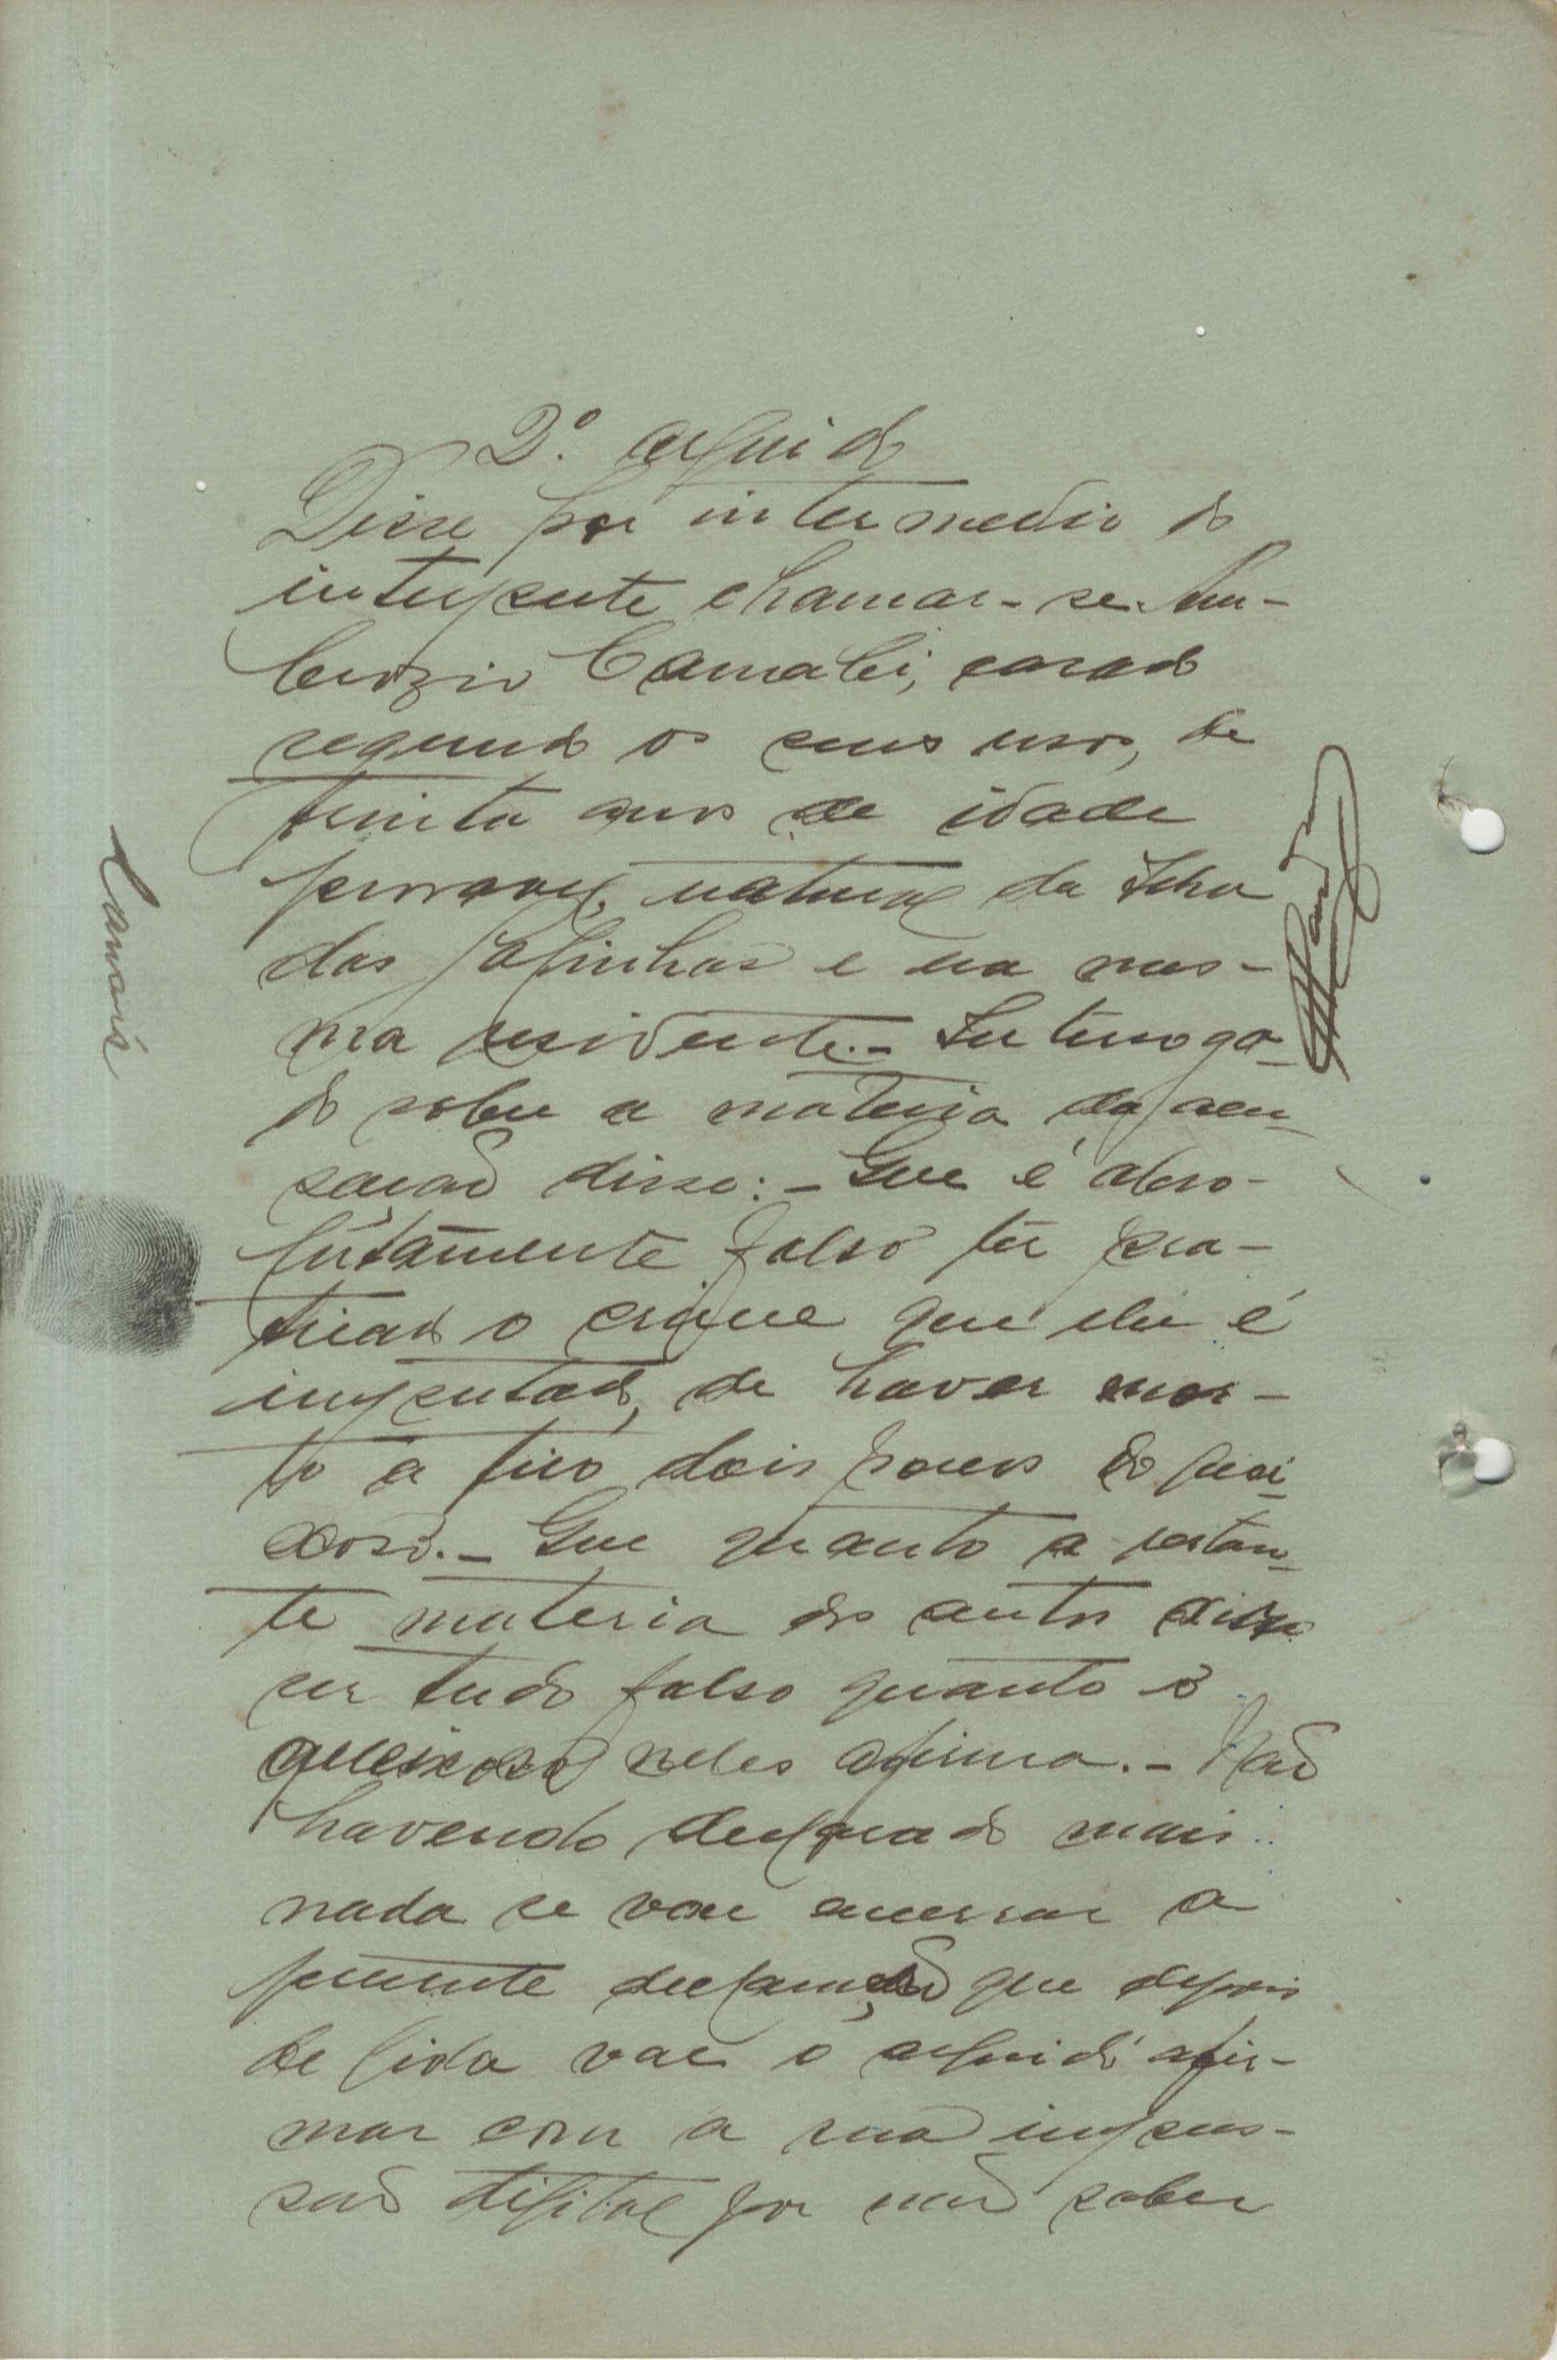 2.º arguido
Disse por intermedio do
interprete chamar-se Am-
brozio Camabi, casado
segundo os seus usos, de
trinta anos de idade
provavel, natural da Ilha
das Galinhas e na mes-
ma residente.- Interroga-
do sobre a materia da acu-
sação disse:- Que é abso-
lutamente falso ter pra-
ticado o crime que ele é
imputado, de haver mor-
to a tiro dois porcos do quei-
xoso.- Que quanto a restan-
te materia dos autos disse
ser tudo falso quanto o
queixoso neles afirma.- Não
havendo declarado mais
nada se vae encerrar a
presente declaração que depois
de lida vae o arguido afir-
mar com a sua impres-
são digital por não saber
Camará